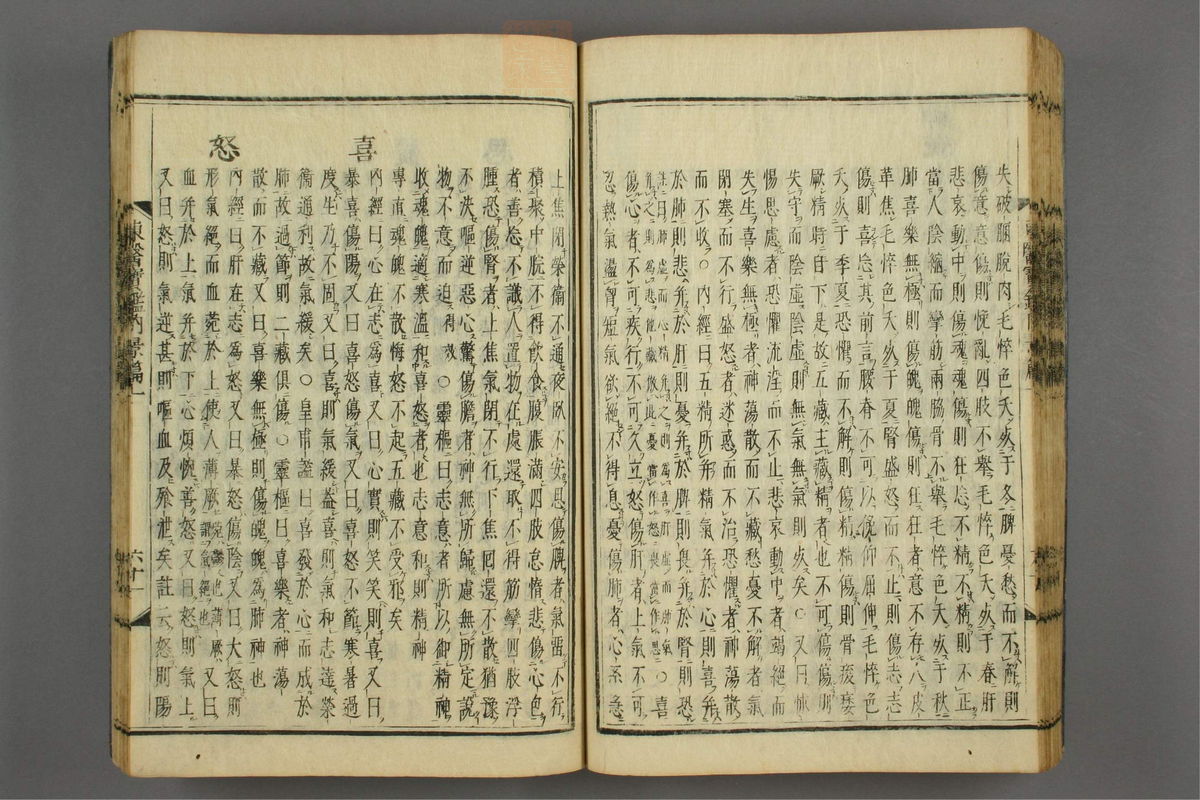 失破䐃脫肉毛悴色夭死于冬脾憂愁而不解則
傷意意傷則悗亂四肢不擧毛悴色夭死于春肝
悲哀動中則傷魂魂傷則狂忘不精不精則不正
當人陰縮而攣筋兩脇骨不擧毛悴色夭死于秋
肺喜樂無極則傷魄魄傷則狂狂者意不存人皮
革焦毛悴色夭死于夏腎盛怒而不止則傷志志
傷則喜忘其前言腰脊不可以俛仰屈伸毛悴色
夭死于季夏恐懼而不解則傷精精傷則骨痠痿
厥精時自下是故五藏主藏精者也不可傷傷則
失守而陰虛陰虛則無氣無氣則死矣○又曰怵
惕思慮者恐懼流淫而不止悲哀動中者竭絕而
失生喜樂無極者蕩散而不藏愁憂不解者氣
閉塞而不行盛怒者迷惑而不治恐懼者神蕩散
而不收○內經曰五精所幷精氣幷於心則喜幷
於肺則悲幷於肝則憂幷於脾則畏幷於腎則恐
註曰肺虛而心精幷之則爲喜肝虛而肺氣
幷之則爲悲他藏倣此憂當作怒畏當作思○喜
傷心者不可疾行不可久立怒傷肝者上氣不可
忍熱氣盪胷短氣欲絕不得息憂傷肺者心系急
上焦閉榮衛不通夜臥不安思傷脾者氣留不行
積聚中脘不得飮食腹脹滿四肢怠惰悲傷心包
者善忘不識人置物在處還取不得筋攣四肢浮
腫恐傷腎者上焦氣閉不行下焦回還不散猶豫
不決嘔逆惡心驚傷膽者神無所歸慮無所定說
物不意而迫得效○靈樞曰志意者所以御精神
收魂魄適寒溫和喜怒者也志意和則精神
專直魂魄不散悔怒不起五藏不受邪矣
喜
內經曰心在志爲喜又曰心實則笑笑則喜又曰
暴喜傷陽又曰喜怒傷氣又曰喜怒不節寒暑過
度生乃不固又曰喜則氣緩蓋喜則氣和志達榮
衛通利故氣緩矣○皇甫謐曰喜發於心而成於
肺故過節則二藏俱傷○靈樞曰喜樂者神蕩
散而不藏又曰喜樂無極則傷魄魄爲肺神也
怒
內經曰肝在志爲怒又曰暴怒傷陰又曰大怒則
形氣絕而血菀於上使人薄厥菀鬱也薄厥謂氣絕也又曰
血幷於上氣幷於下心煩惋善怒又曰怒則氣上
又曰怒則氣逆甚則嘔血及飱泄矣註云怒則陽
東醫寶鑑內景篇一
六十一